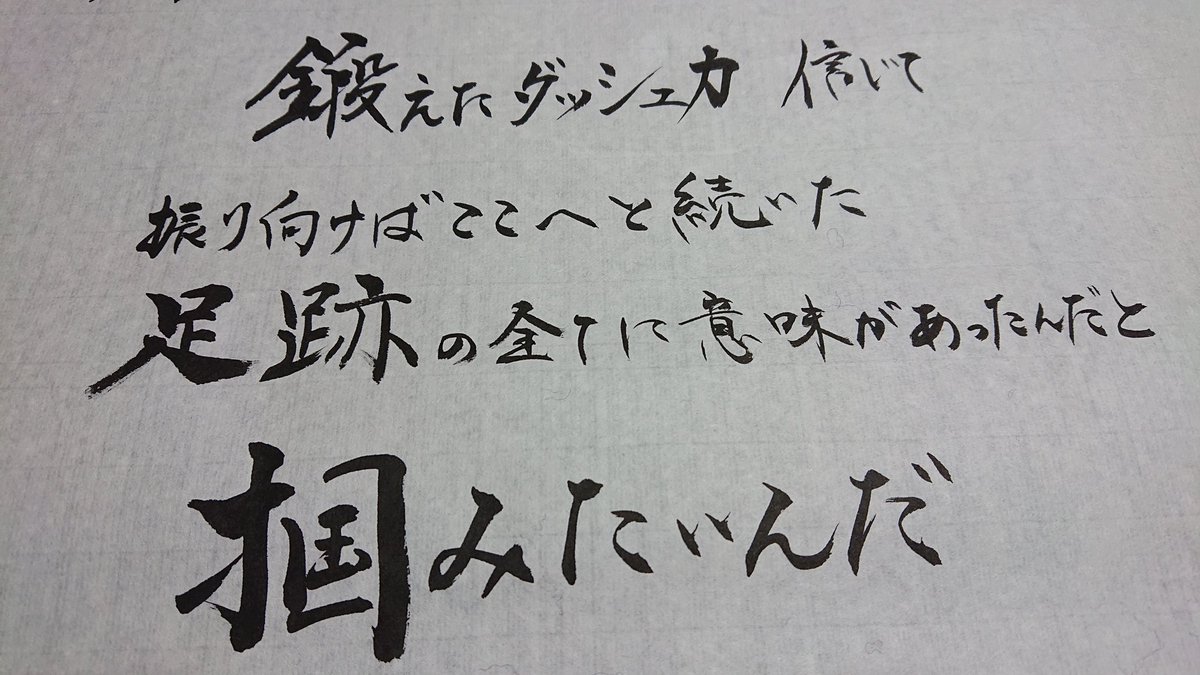 鍛えたダッシュ力 信じて
振り向けばここへと続いた
足跡の全てに意味があったんだと
掴みたいんだ